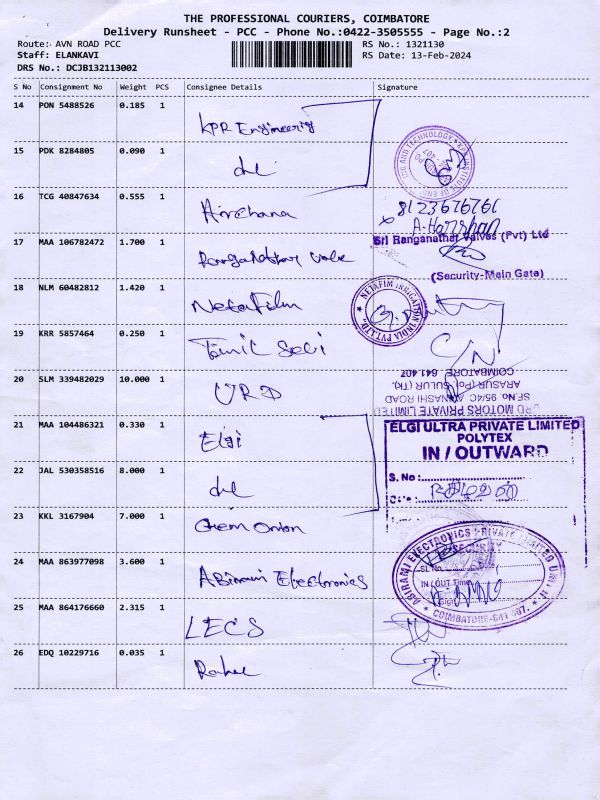 THE PROFESSIONAL COURIERS, COIMBATORE
Delivery Runsheet - PCC - Phone No.:0422-3505555 - Page No.:2
Route: AVN ROAD PCC RS No.: 1321130
Staff: ELANKAVI RS Date: 13-Feb-2024
DRS No.: DCJB132113002
S No Consignment No Weight PCS Consignee Details Signature
14 PON 5488526 0.185 1 KPR Engineering
15 PDK 8284805 0.090 1 do
16 TCG 40847634 0.555 1 Archana
8123676761
A. Harrshan
17 MAA 106782472 1.700 1 Ranganathar valve
Sri Ranganathar Valves (Pvt) Ltd
(Security-Main Gate)
18 NLM 60482812 1.420 1 Netafilm
NETAFIM IRRIGATION INDIA PVT.LTD.
19 KRR 5857464 0.250 1 Tamil Selvi
20 SLM 339482029 10.000 1 URD
URD MOTORS PRIVATE LIMITED
SF.No 95/4C
ARASUR (Po), SULUR (TK),
COIMBATORE 641 407
21 MAA 104486321 0.330 1 Elgi
ELGI ULTRA PRIVATE LIMITED
POLYTEX
IN / OUTWARD
S. No :
22 JAL 530358516 8.000 1 do
23 KKL 3167904 7.000 1
24 MAA 863977098 3.600 1 Abirami Electronics
ABIRAMI ELECTRONICS PRIVATE LIMITED UNIT
SECURITY
SL No
IN / OUT Time
Sign
COIMBATORE-641 407.
25 MAA 864176660 2.315 1 LECS
26 EDQ 10229716 0.035 1 Rahul